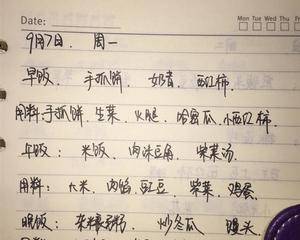 Date:
Mon Tue Wed Thu Fri Sat Sun
9月7日. 周一
早饭: 手抓饼. 奶昔. 西红柿.
用料:手抓饼. 生菜. 火腿. 哈密瓜. 小西红柿.
午饭: 米饭. 肉沫豆角. 紫菜汤.
用料: 大米. 肉馅. 豇豆. 紫菜. 鸡蛋.
晚饭: 炒冬瓜 馒头